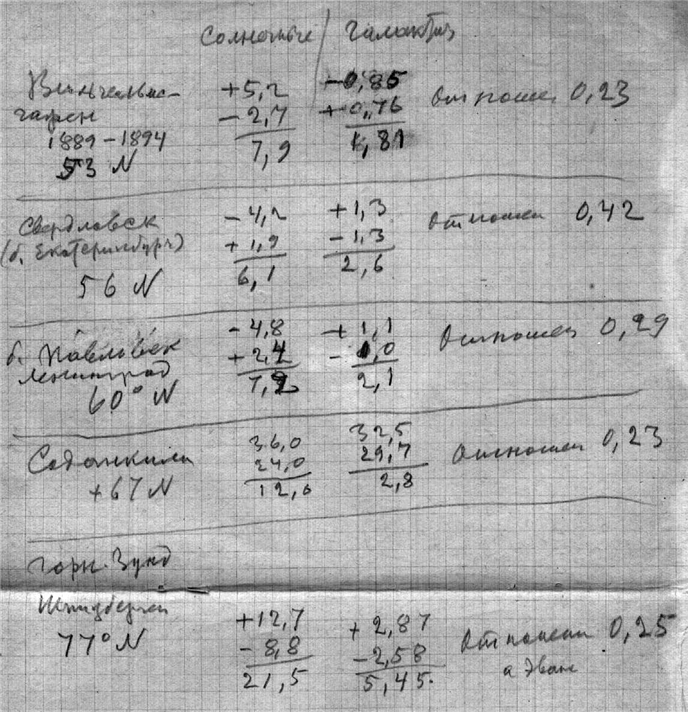 Солнечные / Галактич
Вильгельмс- +5,2 -0,85 Отношен 0,23
гафен -2,7 +0,76
1889-1894 7,9 1,81
53 N
Свердловск -4,2 +1,3 Отношен 0,42
(б. Екатеринбург) +1,9 -1,3
56 N 6,1 2,6
б. Павловск -4,8 +1,1 Отношен 0,29
Ленинград +2,4 -1,0
60° N 7,2 2,1
Соданкиля 36,0 32,5 Отношен 0,23
+67 N 24,0 29,7
12,0 2,8
Горн. Зунд
Шпицберген +12,7 +2,87 Отношен 0,25
77° N -8,8 -2,58
21,5 5,45